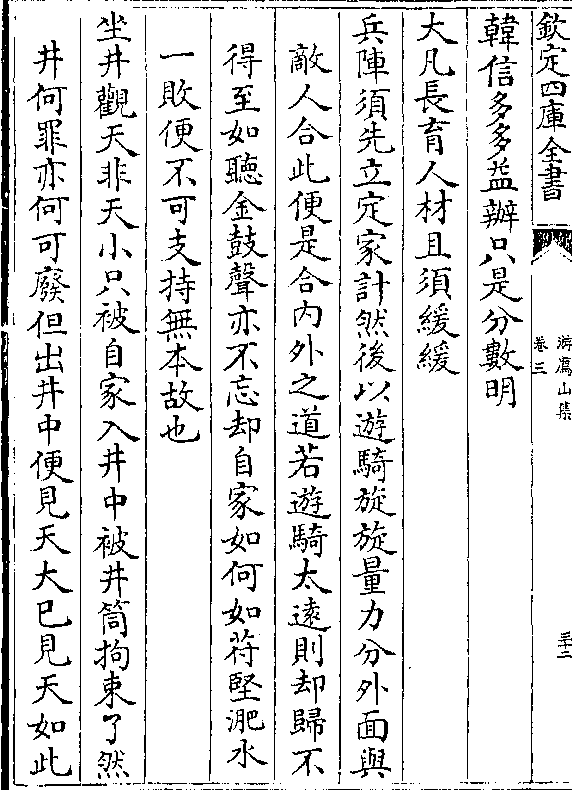 欽定四庫全書
游廌山集
卷三
三十二
韓信多多益辦只是分數明
大凡長育人材且須緩緩
兵陣須先立定家計然後以遊騎旋旋量力分外面與
敵人合此便是合内外之道若遊騎太遠則却歸不
得至如聽金鼓聲亦不忘却自家如何如苻堅淝水
一敗便不可支持無本故也
坐井觀天非天小只被自家入井中被井筒拘束了然
井何罪亦何可廢但出井中便見天大已見天如此